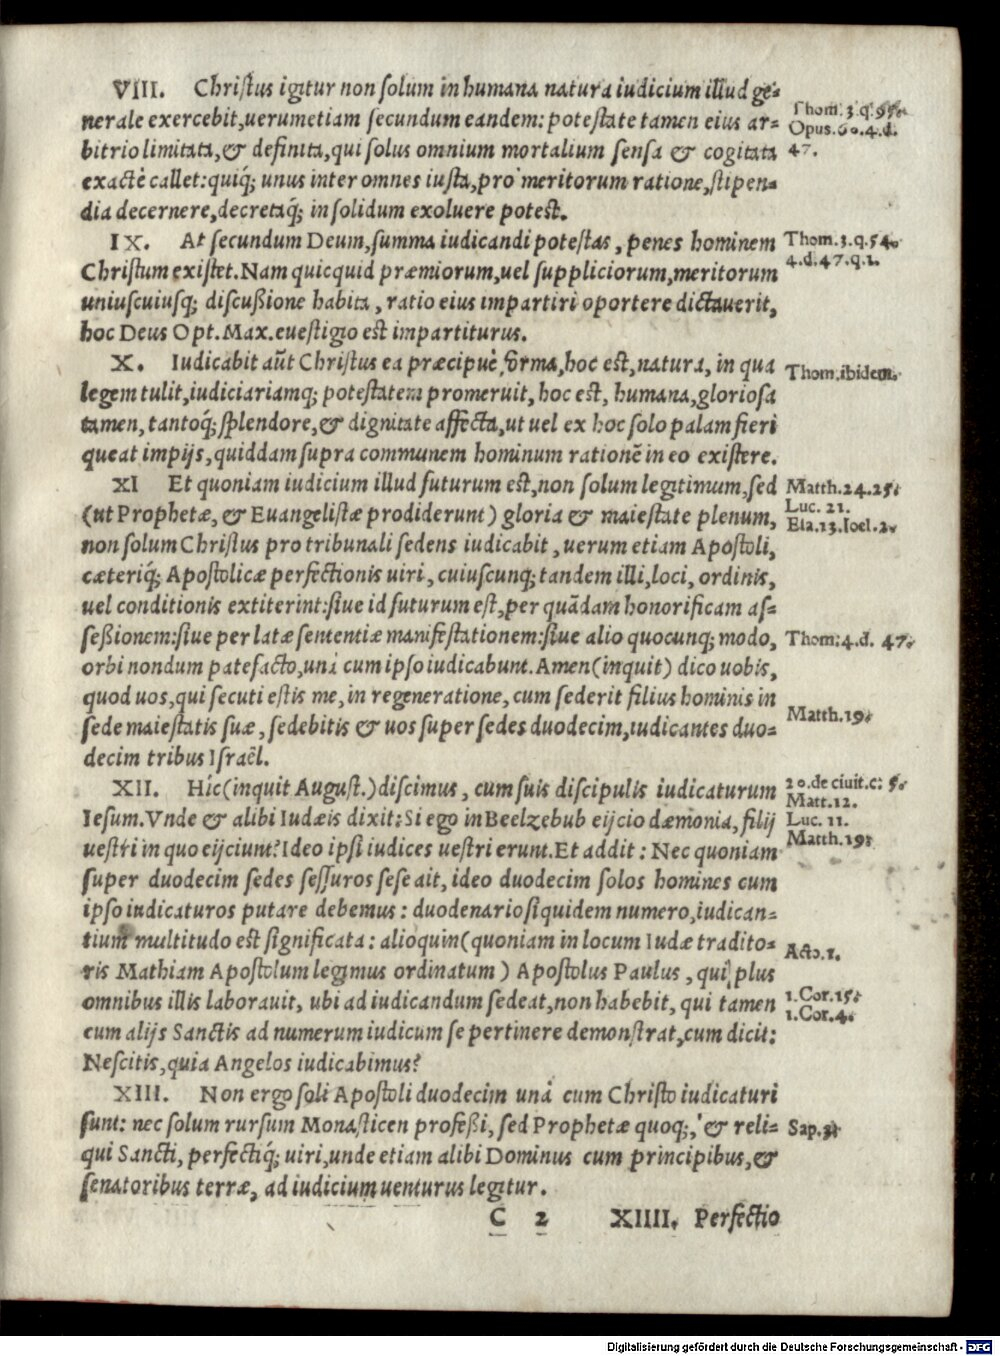 VIII. Christus igitur non solum in humana natura iudicium illud ge-
nerale exercebit, uerumetiam secundum eandem: potestate tamen eius ar-
bitrio limitata, & definita, qui solus omnium mortalium sensa & cogitata
exactè callet: quiq́; unus inter omnes iusta, pro meritorum ratione, stipen-
dia decernere, decretaq́; in solidum exoluere potest.
Thom. 3. q. 59.
Opus. 60. 4. d.
47.
IX. At secundum Deum, summa iudicandi potestas, penes hominem
Christum existet. Nam quicquid præmiorum, uel suppliciorum, meritorum
uniuscuiusq; discußione habita, ratio eius impartiri oportere dictauerit,
hoc Deus Opt. Max. euestigio est impartiturus.
Thom. 3. q. 54.
4. d. 47. q. 1.
X. Iudicabit aūt Christus ea præcipuè forma, hoc est, natura, in qua
legem tulit, iudiciariamq; potestatem promeruit, hoc est, humana, gloriosa
tamen, tantoq́; splendore, & dignitate affecta, ut uel ex hoc solo palam fieri
queat impijs, quiddam supra communem hominum rationē in eo existere.
Thom. ibidem.
XI Et quoniam iudicium illud futurum est, non solum legitimum, sed
(ut Prophetæ, & Euangelistæ prodiderunt) gloria & maiestate plenum,
non solum Christus pro tribunali sedens iudicabit, uerum etiam Apostoli,
cæteriq́; Apostolicæ perfectionis uiri, cuiuscunq; tandem illi, loci, ordinis,
uel conditionis extiterint: siue id futurum est, per quādam honorificam as-
seßionem: siue per latæ sententiæ manifestationem: siue alio quocunq; modo,
orbi nondum patefacto, unà cum ipso iudicabunt. Amen (inquit) dico uobis,
quod uos, qui secuti estis me, in regeneratione, cum sederit filius hominis in
sede maiestatis suæ, sedebitis & uos super sedes duodecim, iudicantes duo-
decim tribus Israël.
Matth. 24. 25.
Luc. 21.
Eia. 13. Ioel. 2.
Thom: 4. d. 47.
Matth. 19.
XII. Hic (inquit August.) discimus, cum suis discipulis iudicaturum
Iesum. Vnde & alibi Iudæis dixit: Si ego in Beelzebub eijcio dæmonia, filij
uestri in quo eijciunt? Ideo ipsi iudices uestri erunt. Et addit: Nec quoniam
super duodecim sedes sessuros sese ait, ideo duodecim solos homines cum
ipso iudicaturos putare debemus: duodenario siquidem numero, iudican-
tium multitudo est significata: alioquin (quoniam in locum Iudæ tradito-
ris Mathiam Apostolum legimus ordinatum) Apostolus Paulus, qui plus
omnibus illis laborauit, ubi ad iudicandum sedeat, non habebit, qui tamen
cum alijs Sanctis ad numerum iudicum se pertinere demonstrat, cum dicit:
Nescitis, quia Angelos iudicabimus?
20. de ciuit. c: 5.
Matt. 12.
Luc. 11.
Matth. 19:
Acto. 1.
1. Cor. 15:
1. Cor. 4.
XIII. Non ergo soli Apostoli duodecim unà cum Christo iudicaturi
sunt: nec solum rursum Monasticen profeßi, sed Prophetæ quoq;, & reli-
qui Sancti, perfectiq́; uiri, unde etiam alibi Dominus cum principibus, &
senatoribus terræ, ad iudicium uenturus legitur.
Sap. 3
C 2 XIIII. Perfectio
Digitalisierung gefördert durch die Deutsche Forschungsgemeinschaft - DFG